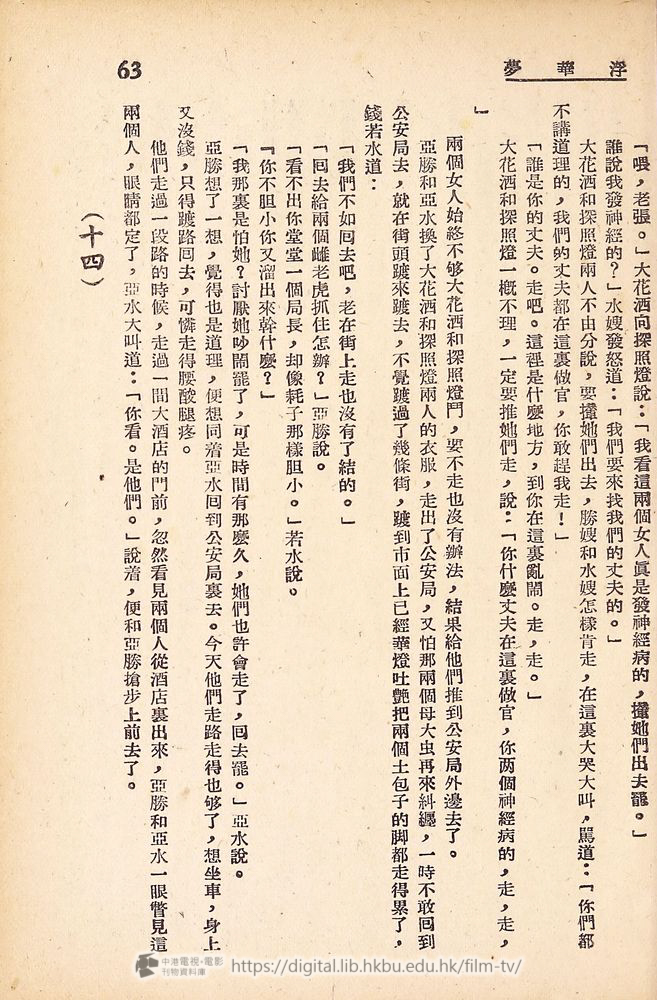 浮華夢
63
「喂，老張。」大花酒向探照燈說：「我看這兩個女人眞是發神經病的，攆她們出去罷。」
誰說我發神經的？」水嫂發怒道：「我們要來找我們的丈夫的。」
大花酒和探照燈兩人不由分說，要攆她們出去，勝嫂和水嫂怎樣肯走，在這裏大哭大叫，駡道：「你們都
不講道理的，我們的丈夫都在這裏做官，你敢趕我走！」
「誰是你的丈夫。走吧。這裡是什麼地方，到你在這裏亂鬧。走，走。」
大花酒和探照燈一槪不理，一定要推她們走，說：「你什麼丈夫在這裏做官，你两個神經病的，走，走，
」
兩個女人始終不够大花酒和探照燈鬥，要不走也沒有辦法，結果給他們推到公安局外邊去了。
亞勝和亞水換了大花酒和探照燈兩人的衣服，走出了公安局，又怕那兩個母大虫再來糾纒，一時不敢囘到
公安局去，就在街頭踱來踱去，不覺踱過了幾條街，踱到市面上已經華燈吐艷把兩個土包子的脚都走得累了，
錢若水道：
「我們不如囘去吧，老在街上走也沒有了結的。」
「囘去給兩個雌老虎抓住怎辦？」亞勝說。
「看不出你堂堂一個局長，却像耗子那樣胆小。」若水說。
『你不胆小你又溜出來幹什麼？」
「我那裏是怕她？討厭她吵鬧罷了，可是時間有那麼久，她們也許會走了，囘去罷。」亞水說。
亞勝想了一想，覺得也是道理，便想同着亞水囘到公安局裏去。今天他們走路走得也够了，想坐車，身上
又沒錢，只得踱路囘去，可憐走得腰酸腿疼。
他們走過一段路的時候，走過一間大酒店的門前，忽然看見兩個人從酒店裏出來，亞勝和亞水一眼瞥見這
兩個人，眼睛都定了，亞水大叫道：「你看。是他們。」說着，便和亞勝搶步上前去了。
（十四）
中港電視·電影
刊物資料庫
https://digital.lib.hkbu.edu.hk/film-tv/